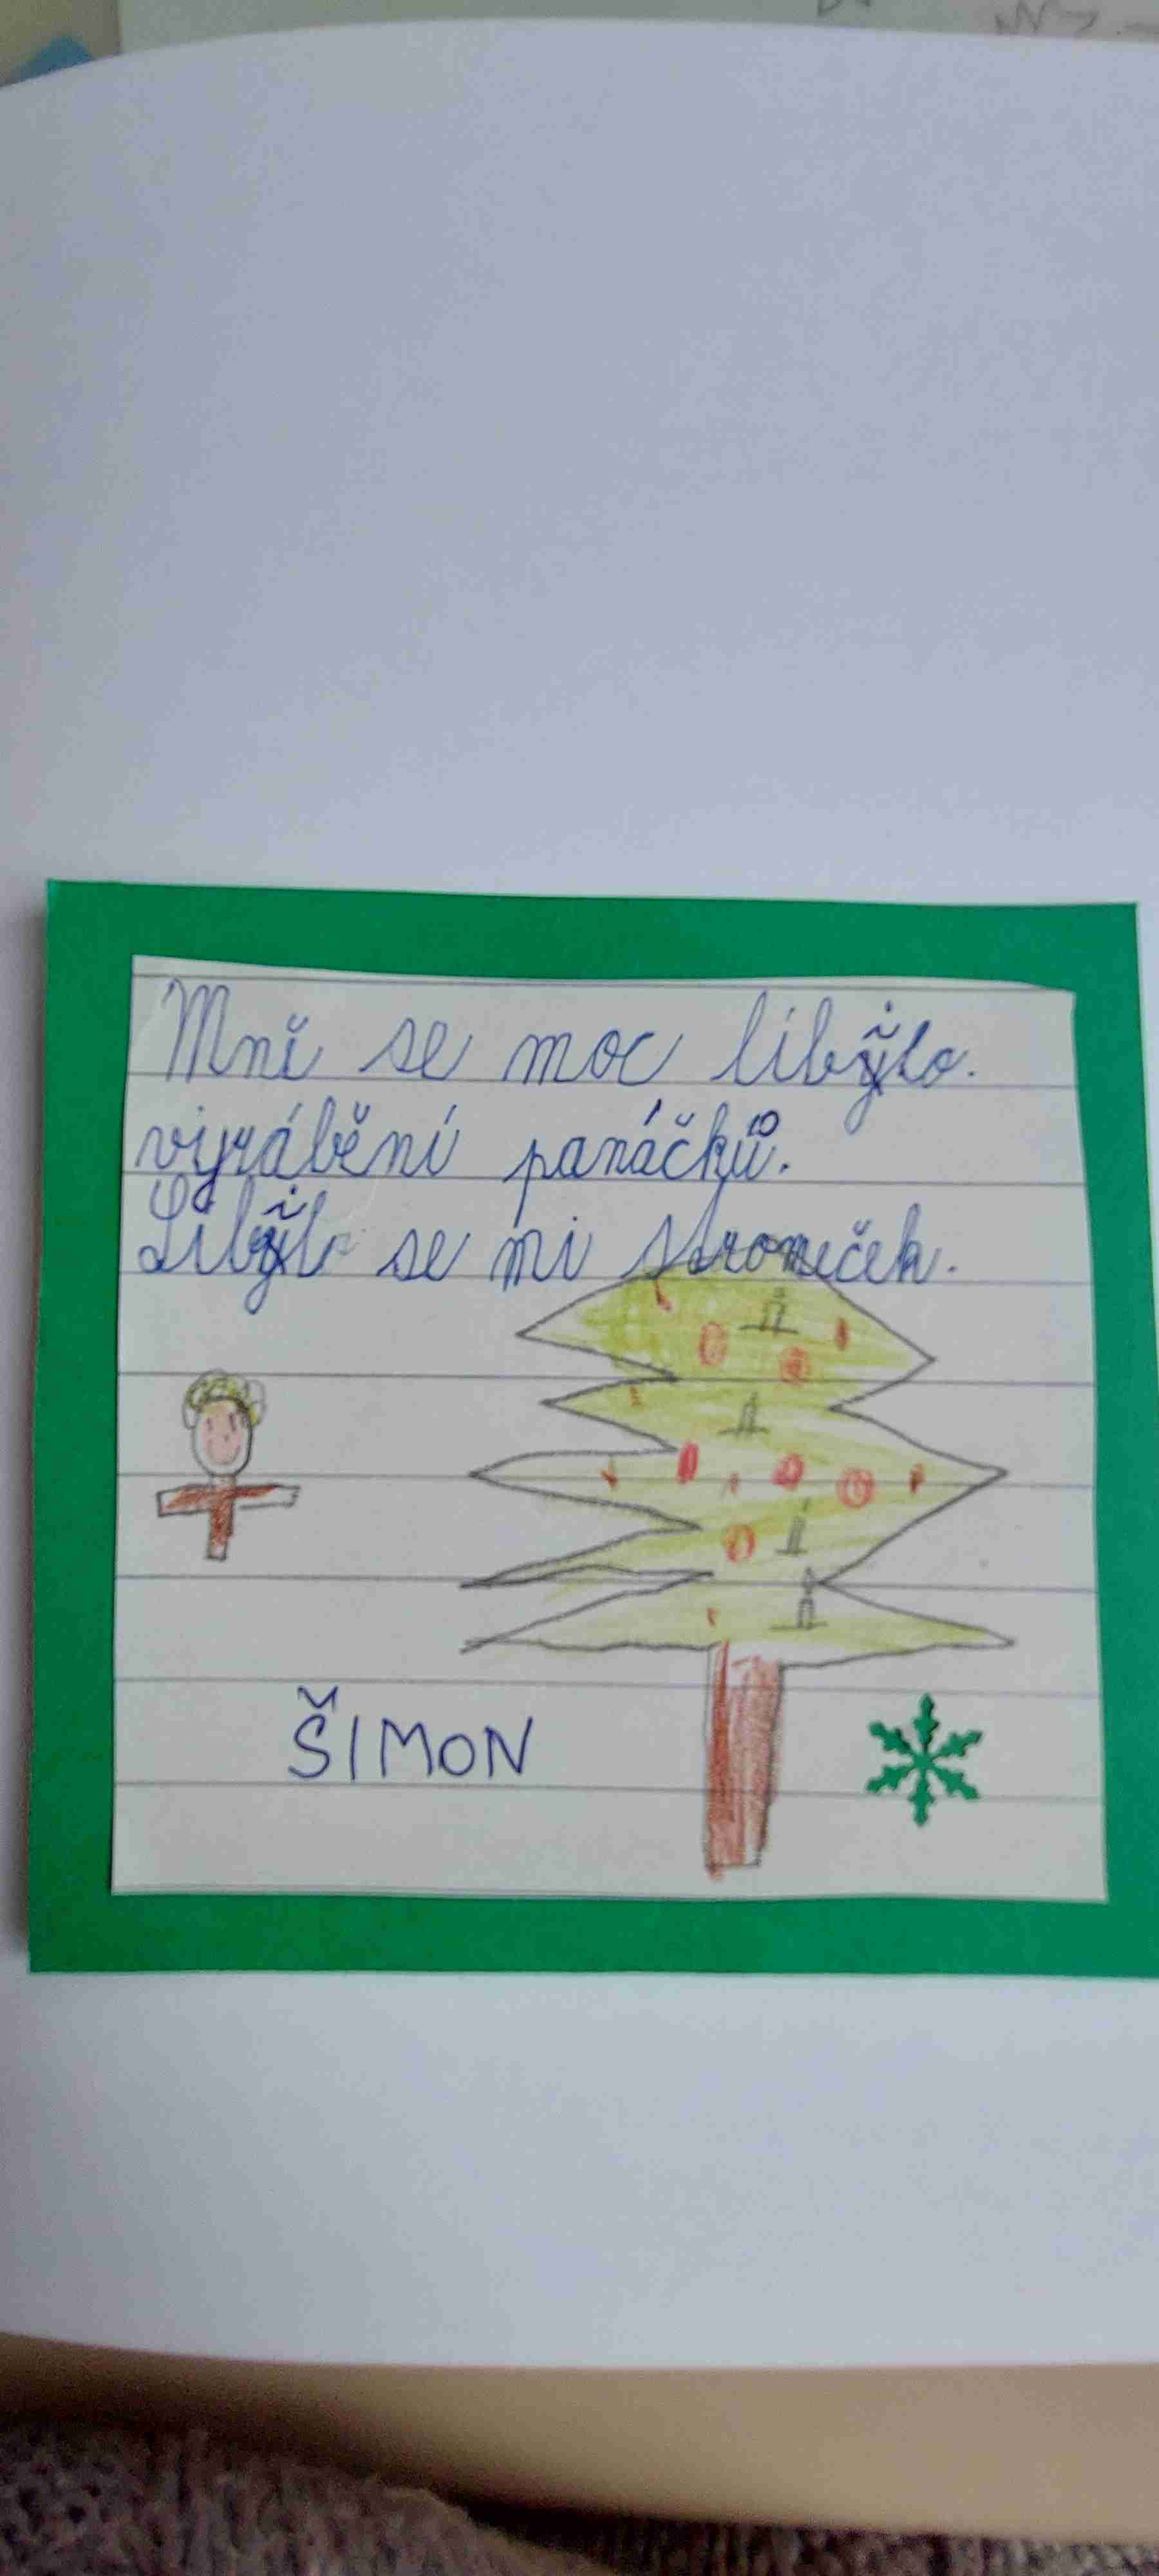 Mně se moc líbilo.
vyrábění panáčků.
Líbil se mi stromeček.
ŠIMON